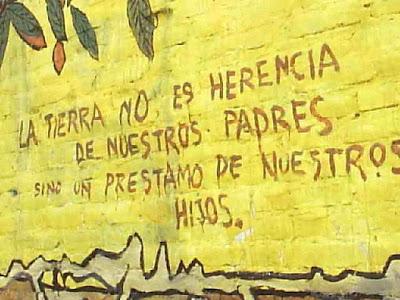 LA TIERRA NO ES HERENCIA
DE NUESTROS PADRES
SINO UN PRESTAMO DE NUESTROS
HIJOS.